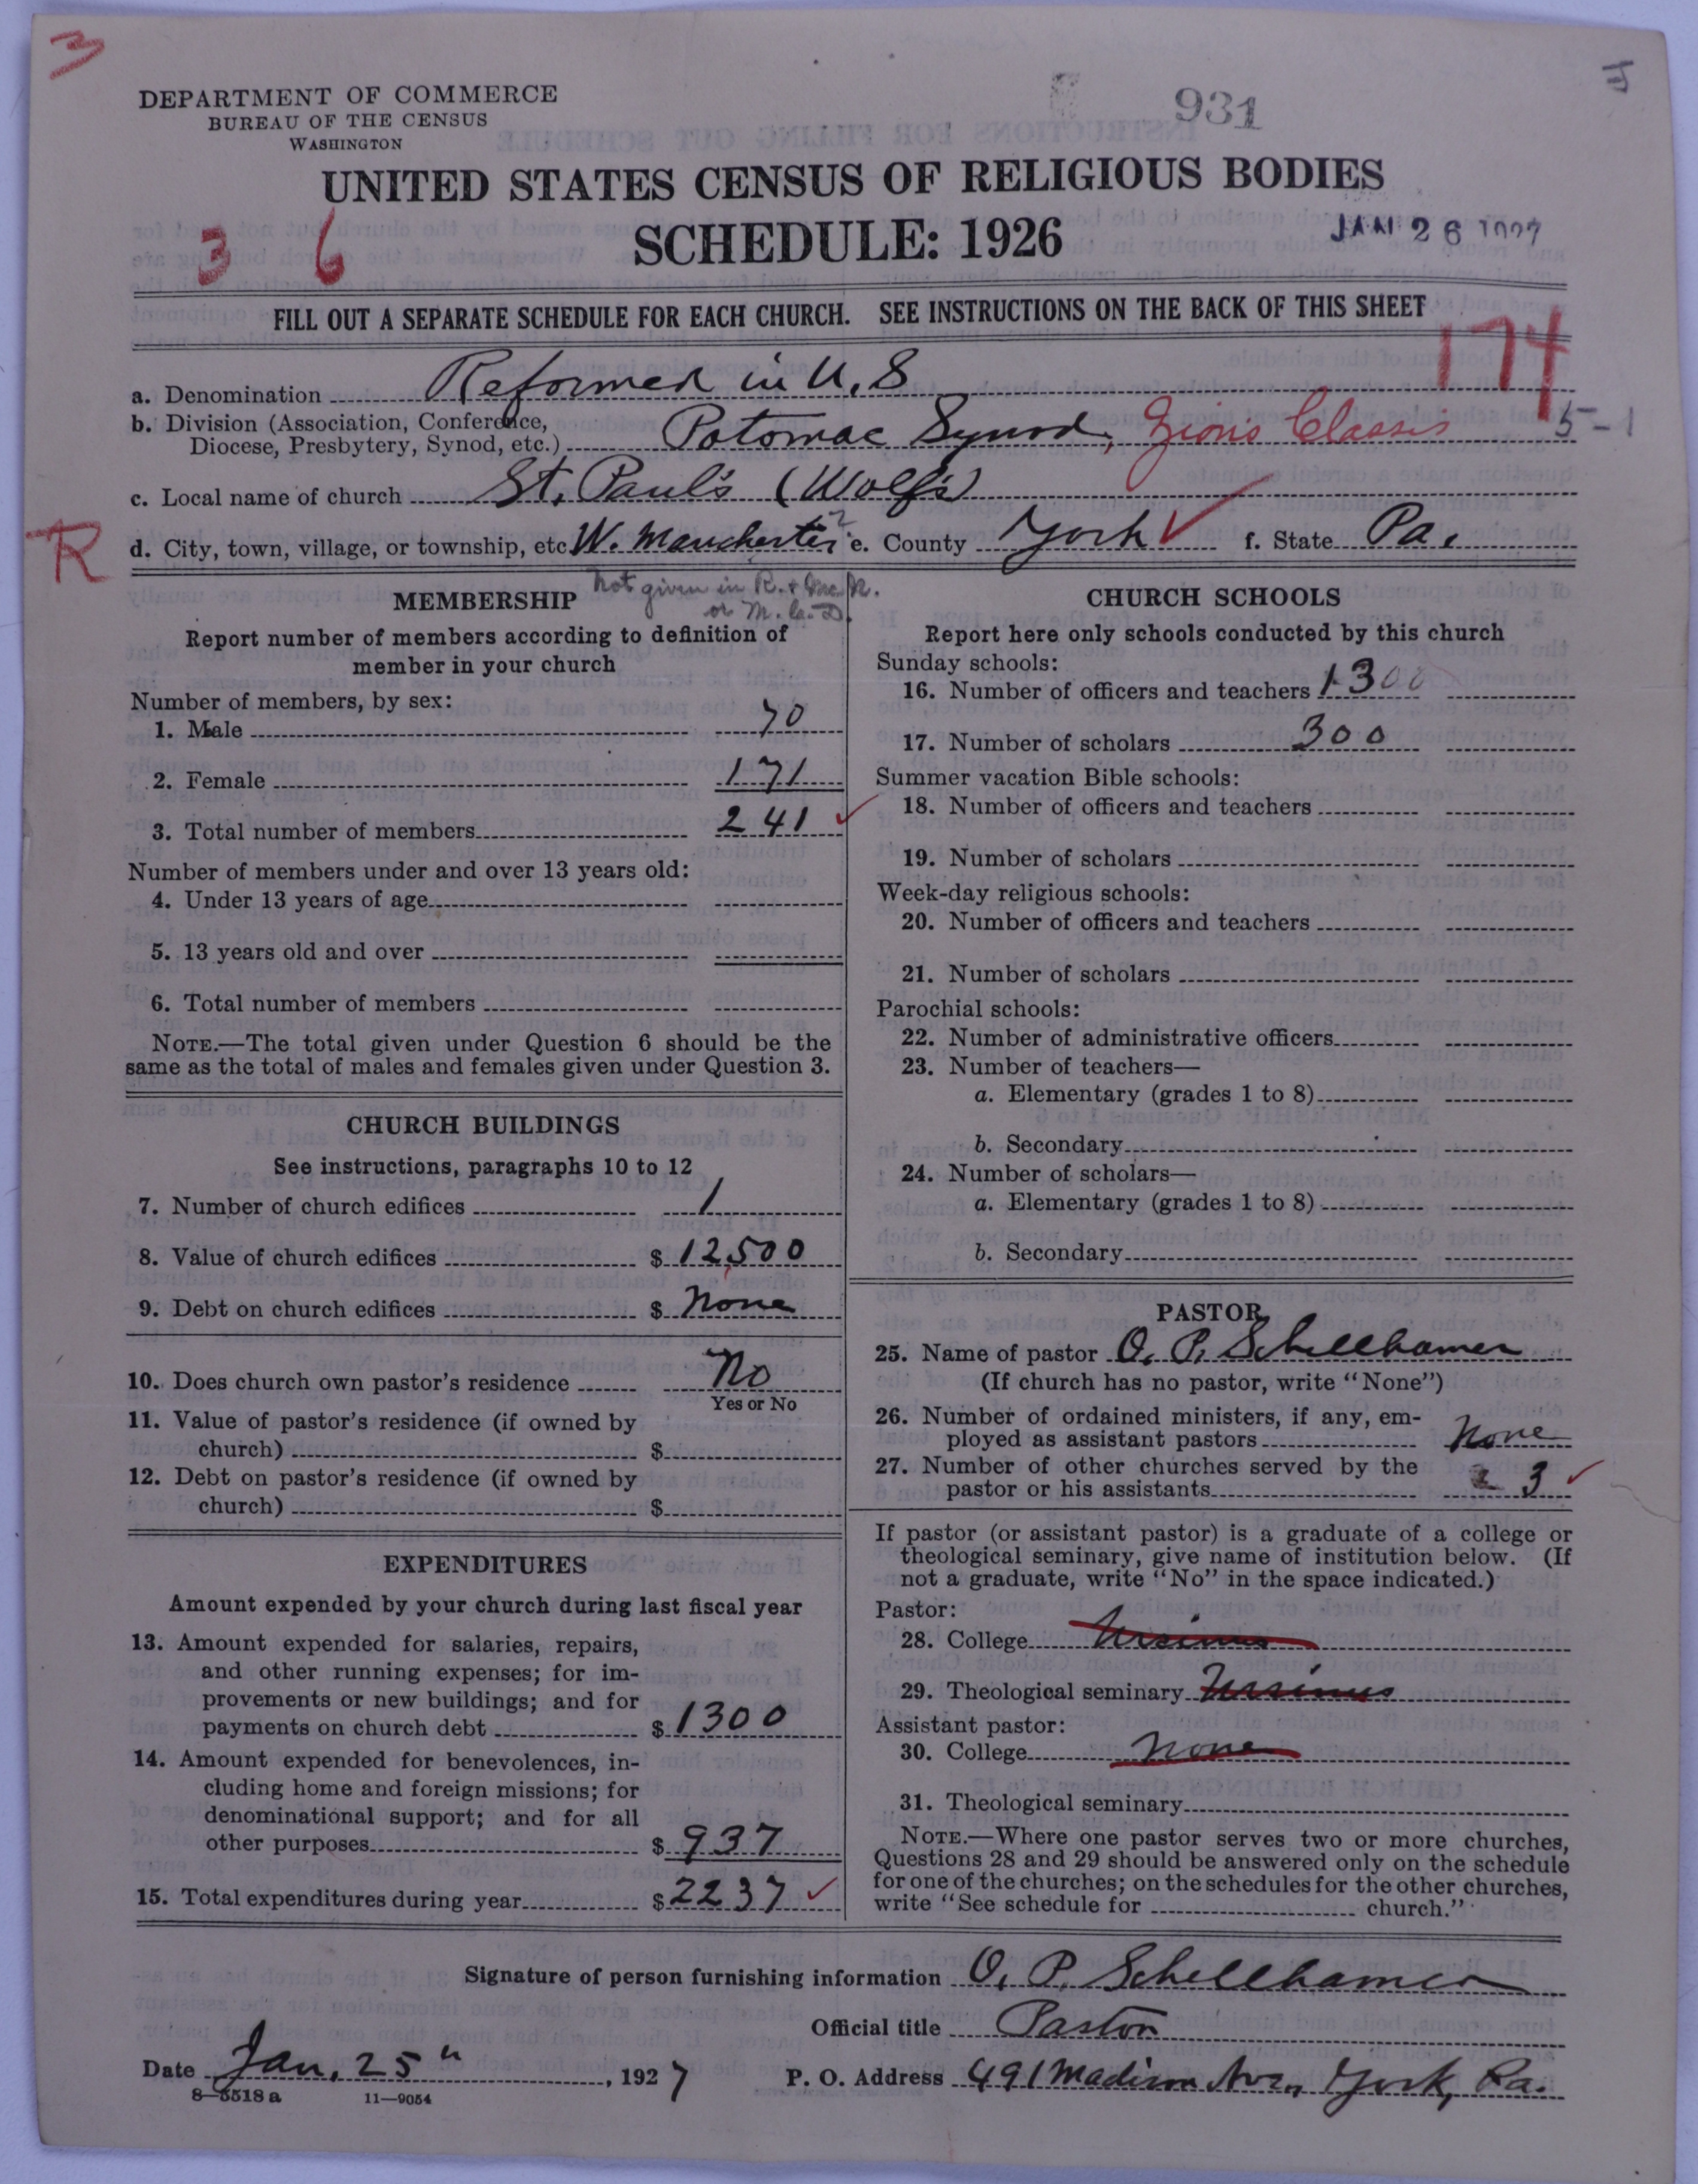 3
DEPARTMENT OF COMMERCE
BUREAU OF THE CENSUS
WASHINGTON
931
UNITED STATES CENSUS OF RELIGIOUS BODIES
SCHEDULE: 1926
3 6
JAN 26 1927
FILL OUT A SEPARATE SCHEDULE FOR EACH CHURCH. SEE INSTRUCTIONS ON THE BACK OF THIS SHEET
174
a. Denomination Reformed in U.S
b. Division (Association, Conference,
Diocese, Presbytery, Synod, etc.) Potomac Synod, Zions Classis 5-1
c. Local name of church St. Paul's (Wolf's)
R
d. City, town, village, or township, etc. W. Manchester e. County York f. State Pa.
MEMBERSHIP
Not given in R. + McN.
or M. C. D.
Report number of members according to definition of
member in your church
Number of members, by sex:
1. Male 70
2. Female 171
3. Total number of members 241
Number of members under and over 13 years old:
4. Under 13 years of age
5. 13 years old and over
6. Total number of members
NOTE.—The total given under Question 6 should be the
same as the total of males and females given under Question 3.
CHURCH BUILDINGS
See instructions, paragraphs 10 to 12
7. Number of church edifices 1
8. Value of church edifices $ 12,500
9. Debt on church edifices $ None
10. Does church own pastor's residence No
Yes or No
11. Value of pastor's residence (if owned by
church) $
12. Debt on pastor's residence (if owned by
church) $
EXPENDITURES
Amount expended by your church during last fiscal year
13. Amount expended for salaries, repairs,
and other running expenses; for im-
provements or new buildings; and for
payments on church debt $ 1300
14. Amount expended for benevolences, in-
cluding home and foreign missions; for
denominational support; and for all
other purposes $ 937
15. Total expenditures during year $ 2237
CHURCH SCHOOLS
Report here only schools conducted by this church
Sunday schools:
16. Number of officers and teachers 1300
17. Number of scholars 300
Summer vacation Bible schools:
18. Number of officers and teachers
19. Number of scholars
Week-day religious schools:
20. Number of officers and teachers
21. Number of scholars
Parochial schools:
22. Number of administrative officers
23. Number of teachers—
a. Elementary (grades 1 to 8)
b. Secondary
24. Number of scholars—
a. Elementary (grades 1 to 8)
b. Secondary
PASTOR
25. Name of pastor O. P. Schellhamer
(If church has no pastor, write "None")
26. Number of ordained ministers, if any, em-
ployed as assistant pastors None
27. Number of other churches served by the
pastor or his assistants 3
If pastor (or assistant pastor) is a graduate of a college or
theological seminary, give name of institution below. (If
not a graduate, write "No" in the space indicated.)
Pastor:
28. College Ursinus
29. Theological seminary Ursinus
Assistant pastor:
30. College None
31. Theological seminary
NOTE.—Where one pastor serves two or more churches,
Questions 28 and 29 should be answered only on the schedule
for one of the churches; on the schedules for the other churches,
write "See schedule for church."
Signature of person furnishing information O. P. Schellhamer
Official title Pastor
Date Jan. 25", 1927 P. O. Address 491 Madison Ave., York, Pa.
8—5518 a 11—9054